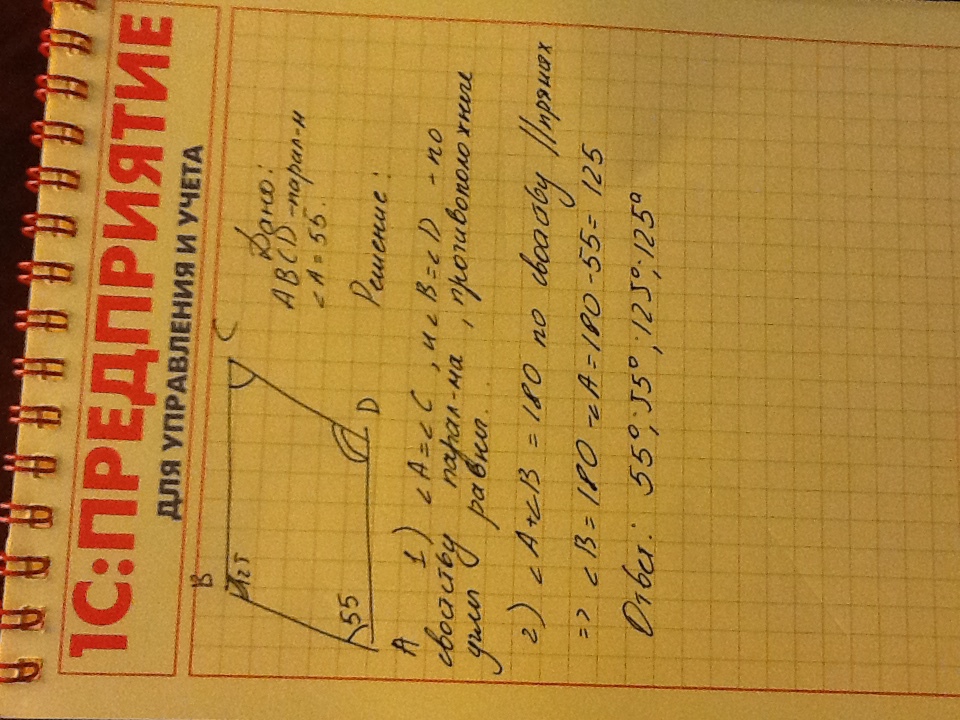 1С:ПРЕДПРИЯТИЕ
ДЛЯ УПРАВЛЕНИЯ И УЧЕТА
B
C
125
55
A
D
Дано:
ABCD -парал-м
<A = 55.
Решение:
1) <A = <C , и <B = <D - по
свойству парал-ма , противоположные
углы равны.
2) <A + <B = 180 по свойству // прямых
=> <B = 180 - <A = 180 - 55 = 125
Ответ: 55°, 55°, 125°, 125°